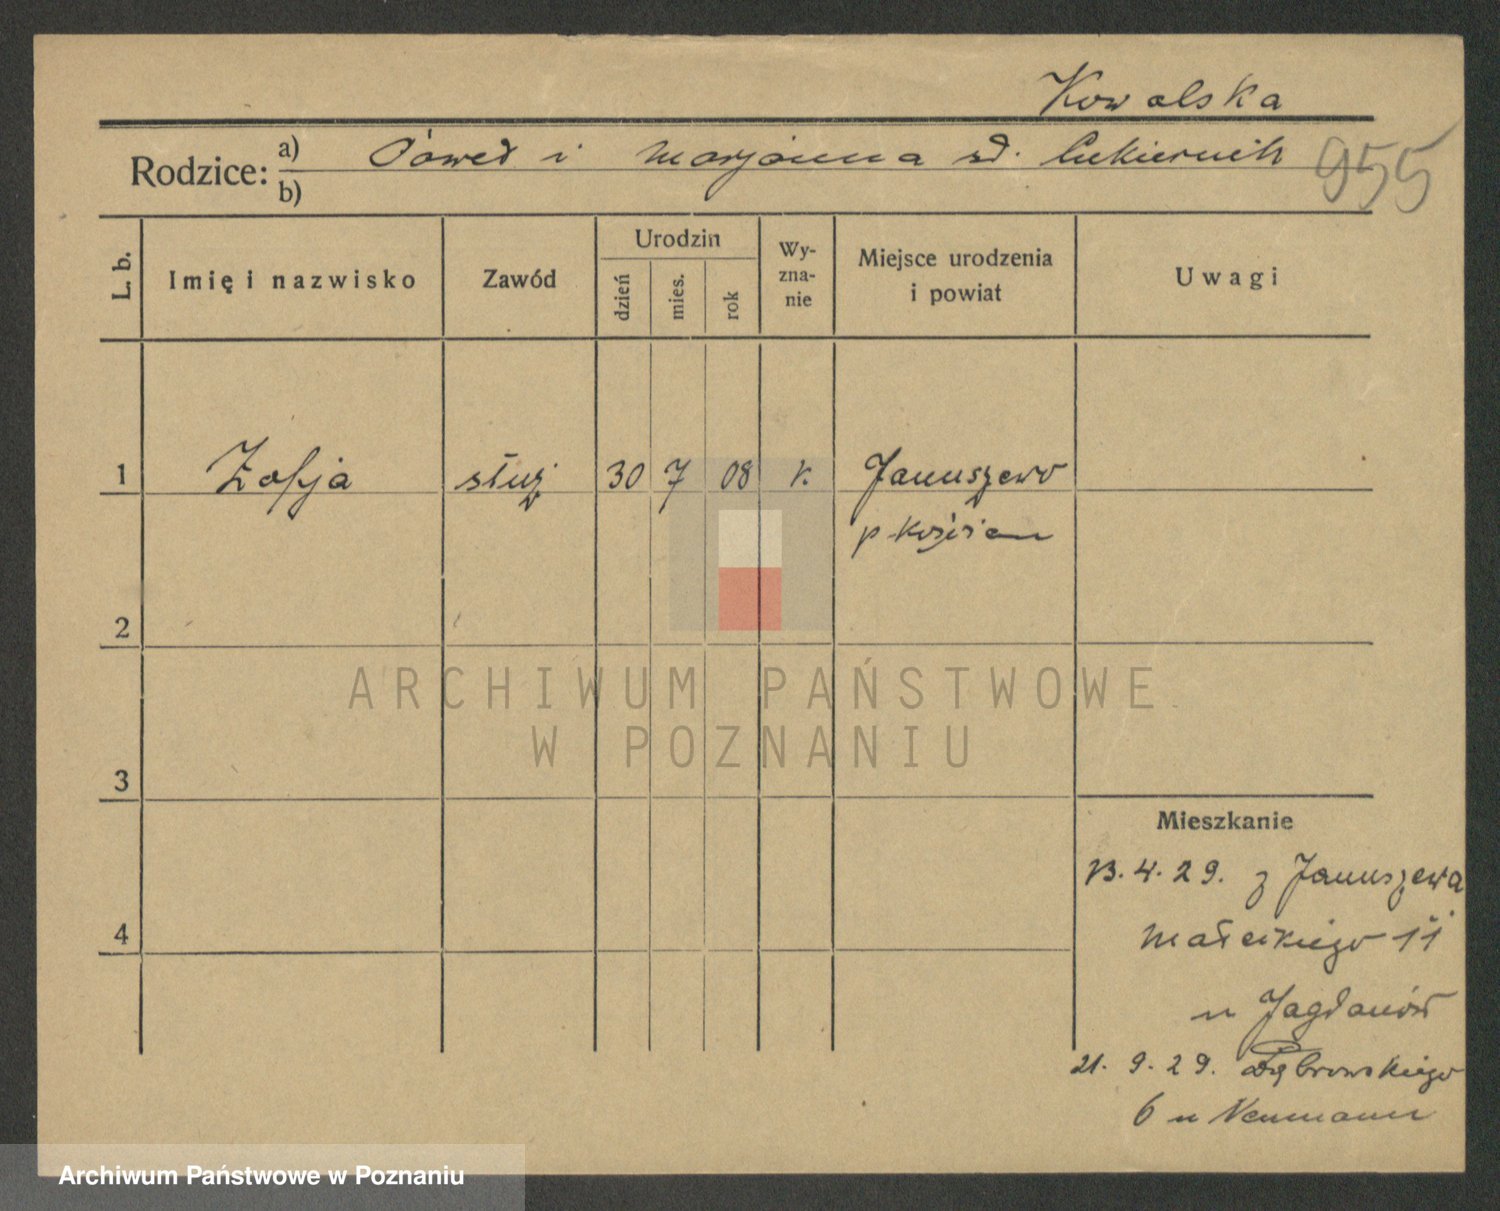 Kowalska
Rodzice: a) Paweł i Marjanna zd. Cukiernik
b)
955
L. b.
Imię i nazwisko
Zawód
Urodzin
dzień
mies.
rok
Wy-
zna-
nie
Miejsce urodzenia
i powiat
Uwagi
1 Zofja służ 30 7 08 k. Januszewo
p Kościan
2
3
4
Mieszkanie
13. 4. 29. z Januszewa
Małeckiego 11
u
21. 9. 29. Dąbrowskiego
6 u Neumann
ARCHIWUM PAŃSTWOWE
W POZNANIU
Archiwum Państwowe w Poznaniu